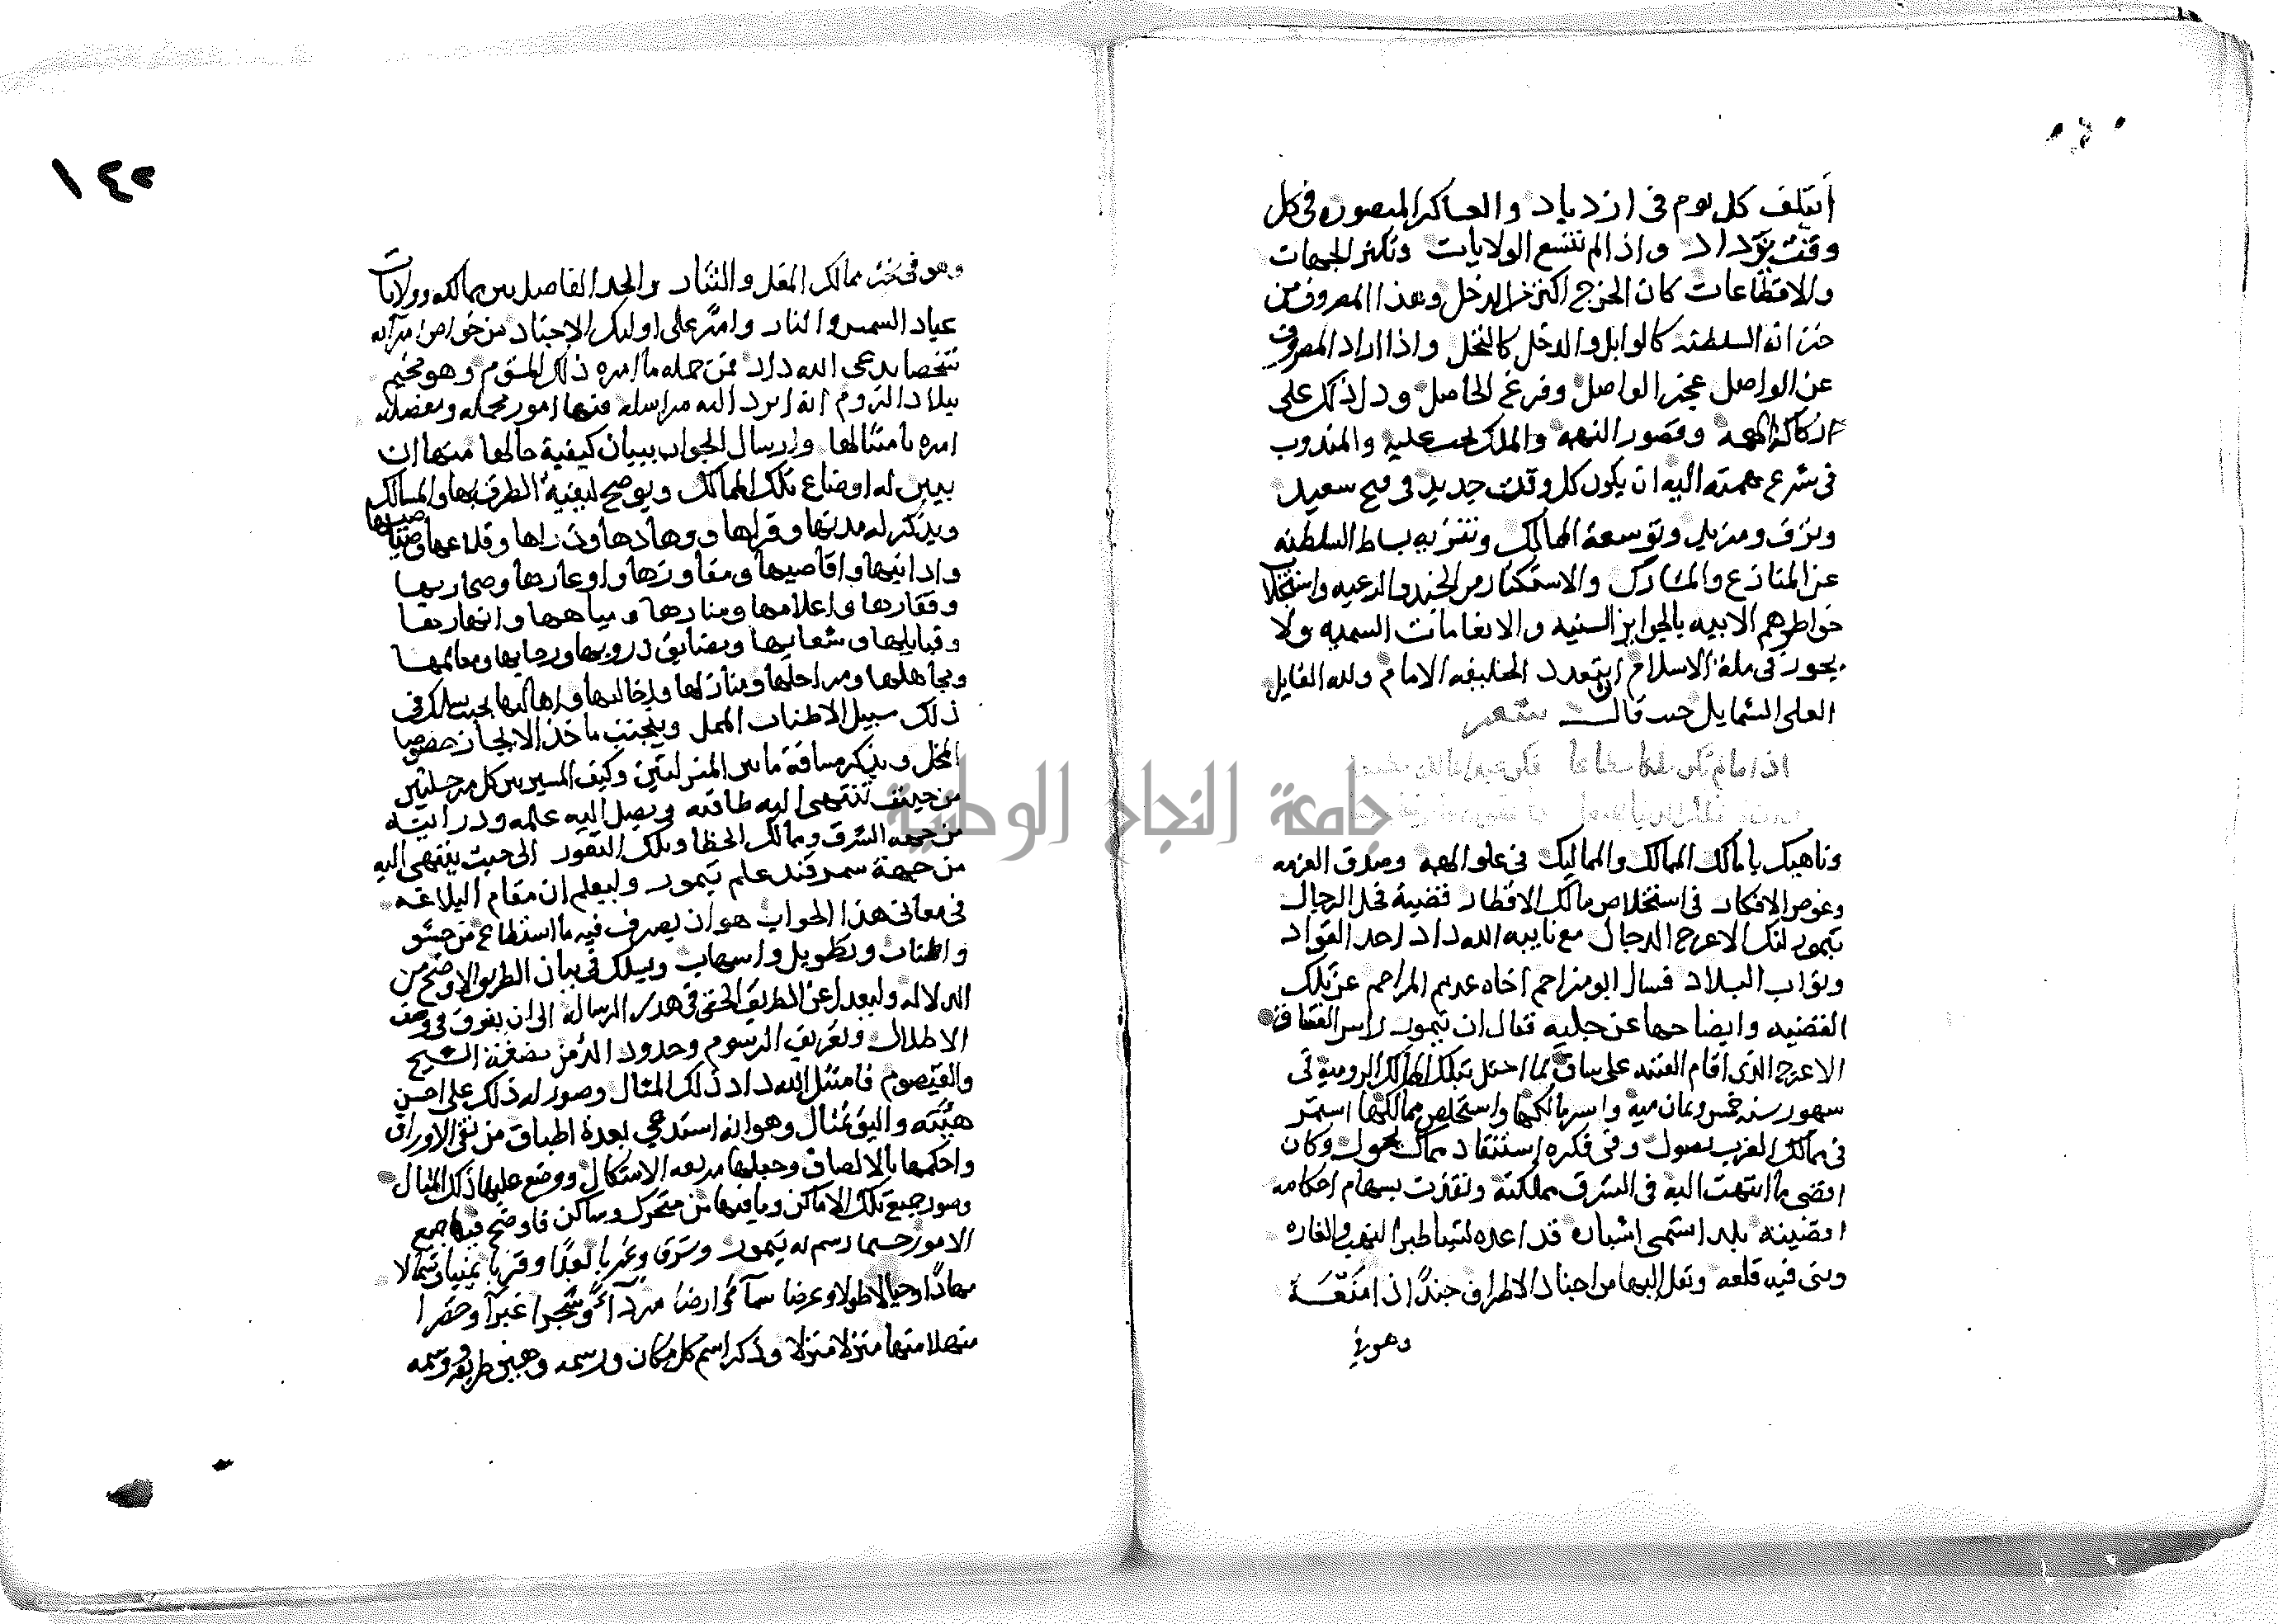 أنتلف كل يوم في ازدياد والعساكر المنصورة في كل
وقت يزداد واذا لم تتسع الولايات وتكثر الجهات
والاقطاعات كان الخرج اكثر من الدخل وهذا المصروف من
خزانة السلطنه كالوابل والدخل كالنخل واذا اراد المصروف
عن الواصل عجز الواصل وفرغ الحاصل ودل ذلك على
الهمه وقصور النهمه والملك يجب عليه والمندوب
في شرع همته اليه ان يكون كل وقت جديد في فتح سعيد
وترق ومزيد وتوسعة الممالك وتنزيه بساط السلطنه
عن المنازع والمشارك والاستكثار من الجند والرعيه واستجلاب
خواطرهم الابيه بالجوايز السنيه والانعامات السميه ولا
يجوز في ملة الاسلام ان يتعدد الخليفه الامام ولله القايل
العلى الشمايل حيث قال شعر
وناهيك يا مالك الممالك والمماليك في علو الهمه وصدق العزمه
وغوص الافكار في استخلاص ممالك الاقطار قضية فحل الرجال
تيمور لنك الاعرج الدجال مع نايبه الله داد احد القواد
ونواب البلاد فسال ابو مزاحم اخاه عديم المراحم عن تلك
القضيه وايضاحها عن جليه فقال ان تيمور راس الفساق
الاعرج الذي اقام الفتنه على ساق لما احتل بتلك الممالك الروميه في
شهور سنه خمس وثمان ميه واسر مالكها واستخلص ممالكها استمر
في ممالك الغرب يصول وفي فكره استنقاد ممالك يحول وكان
اقصى ما انتهت اليه في الشرق مملكته ونفذت بسهام احكامه
اقضيته بلد استمى اشباره قد اعده لشياطين النهب والغاره
وبنى فيه قلعه ونقل اليها من اجناد الاطراف جندا ذا منعة
وهو في
١٤٢
وهو في نحر ممالك المغل والتتار والحد الفاصل بين ممالكه وولايات
عباد الشمس والنار وامر على اوليك الاجناد من خواص امرآيه
شخصا يدعى الله داد فمن جمله ما امره ذلك المشؤم وهو مخيم
ببلاد الروم انه ابرد اليه مراسله فيها امور مجمله ومفصله
امره بامتثالها وارسال الجواب ببيان كيفية حالها منها ان
يبين له اوضاع تلك الممالك ويوضح كيفية الطرق بها والمسالك
ويذكر له مدنها وقراها ووهادها وذراها وقلاعها وصياصيها
وادانيها واقاصيها ومفاوزها واوعارها وصحاريها
وقفارها واعلامها ومنارها ومياهها وانهارها
وقبايلها وشعابها ومضايق دروبها ورحابها ومعالمها
ومجاهلها ومراحلها ومنازلها وخاليها واهاليها بحيث يسلك في
ذلك سبيل الاطناب الممل ويتجنب ماخذ الايجاز خصوصا
المخل ويذكر مسافة ما بين المنزلتين وكيف المسير بين كل مرحلتين
من حيث تنتهي اليه طاقته ويصل اليه علمه ودرايته
من جهة الشرق وممالك الخطا وتلك الثغور الى حيث ينتهي اليه
من جهة سمرقند علم تيمور وليعلم ان مقام البلاغه
في معاني هذا الجواب هو ان يصرف فيه ما استطاع من حشو
واطناب وتطويل واسهاب ويسلك في بيان الطريق الاوضح من
الدلاله وليعدل عن الطريق الخفي في هذه الرساله الى ان يفوق في وصف
الاطلال وتعريف الرسوم وحدود الدمن بصفة الشيح
والقيصوم فامتثل الله داد ذلك المثال وصور له ذلك على احسن
هيئة واليق تمثال وهو انه استدعى بعدة اطباق من نقي الاوراق
واحكمها بالالصاق وجعلها مربعه الاشكال ووضع عليها ذلك المثال
وصور جميع تلك الاماكن وما فيها من متحرك وساكن فاوضح فيها جميع
الامور حسبما رسم له تيمور وشرقا وغربا بعدا وقربا يمينا وشمالا
مهادا وجبالا طولا وعرضا سمآء وارضا مرداء وشجرا غبرآ وخضرا
منهلا منهلا منزلا منزلا وذكر اسم كل مكان ورسمه وعين طريقه وسمه
جامعة النجاح الوطنية